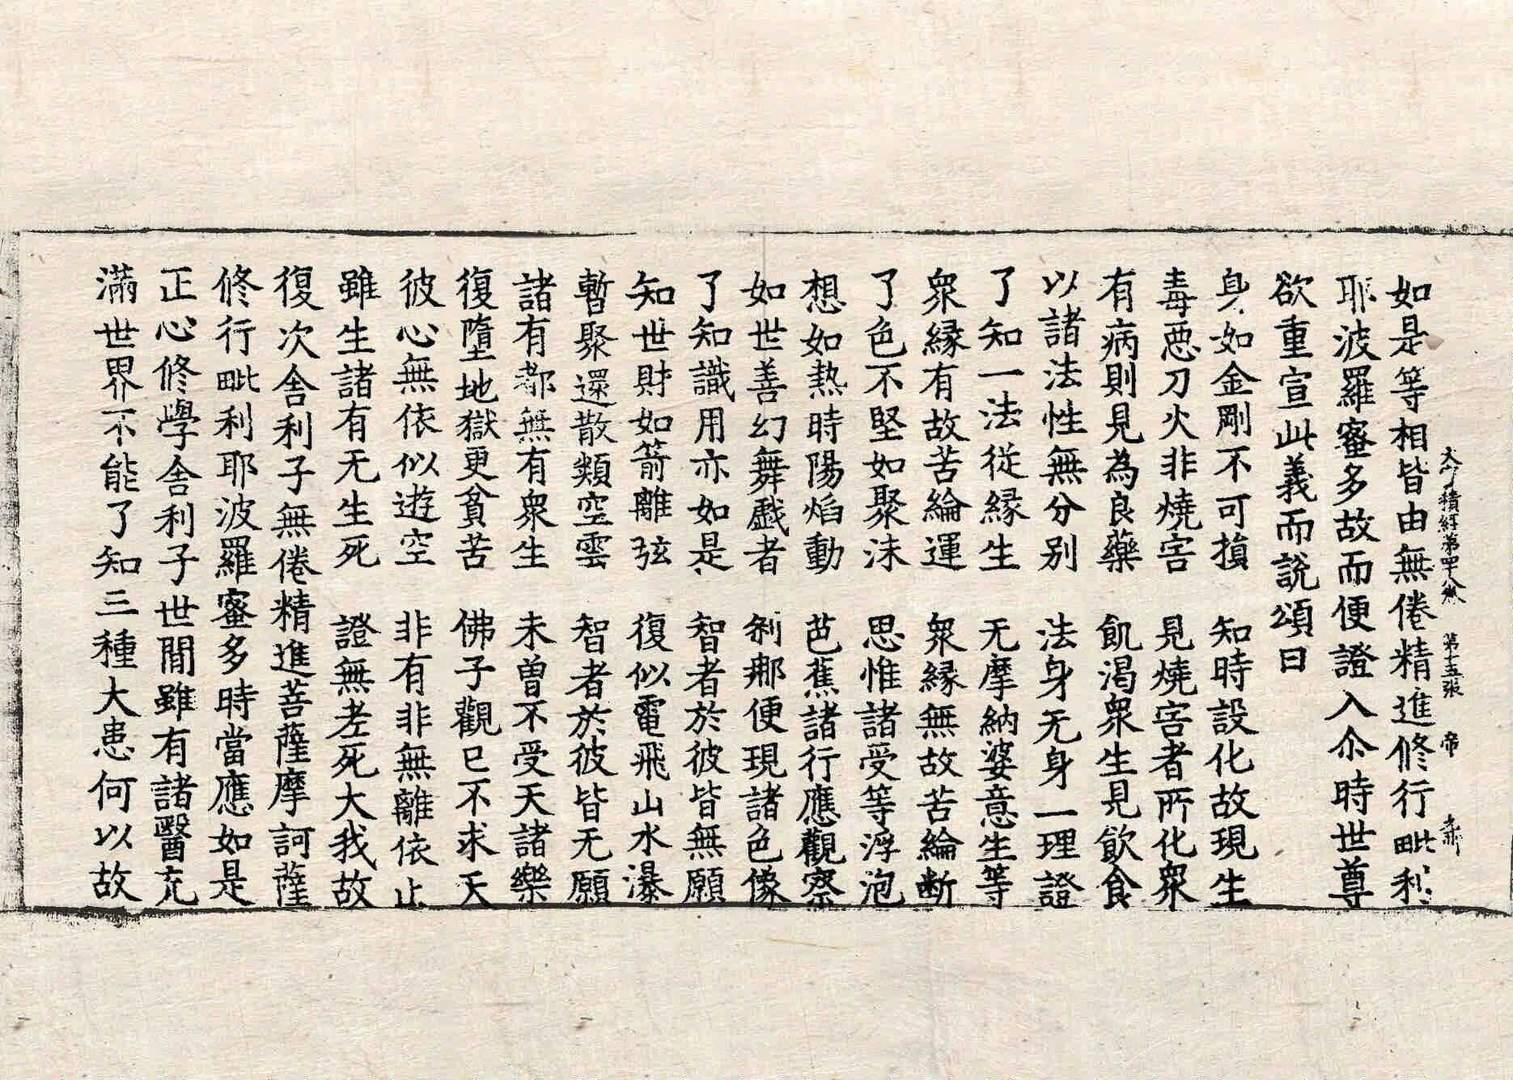 大積經第四八卷 第十五張 帝
如是等相皆由無倦精進修行毗利
耶波羅蜜多故而便證入尒時世尊
欲重宣此義而說頌曰
身如金剛不可損 知時設化故現生
毒惡刀火非燒害 見燒害者所化衆
有病則見為良藥 飢渴衆生見飲食
以諸法性無分别 法身无身一理證
了知一法從縁生 无摩納婆意生等
衆縁有故苦綸運 衆縁無故苦綸断
了色不堅如聚沫 思惟諸受等浮泡
想如熱時陽焰動 芭蕉諸行應觀察
如世善幻舞戲者 刹那便現諸色像
了知識用亦如是 智者於彼皆無願
知世財如箭離弦 復似電飛山水瀑
暫聚還散類空雲 智者於彼皆无願
諸有都無有衆生 未曽不受天諸樂
復墮地獄更貧苦 佛子觀已不求天
彼心無依似遊空 非有非無離依止
雖生諸有无生死 證無老死大我故
復次舍利子無倦精進菩薩摩訶薩
修行毗利耶波羅蜜多時當應如是
正心修學舍利子世間雖有諸醫充
滿世界不能了知三種大患何以故